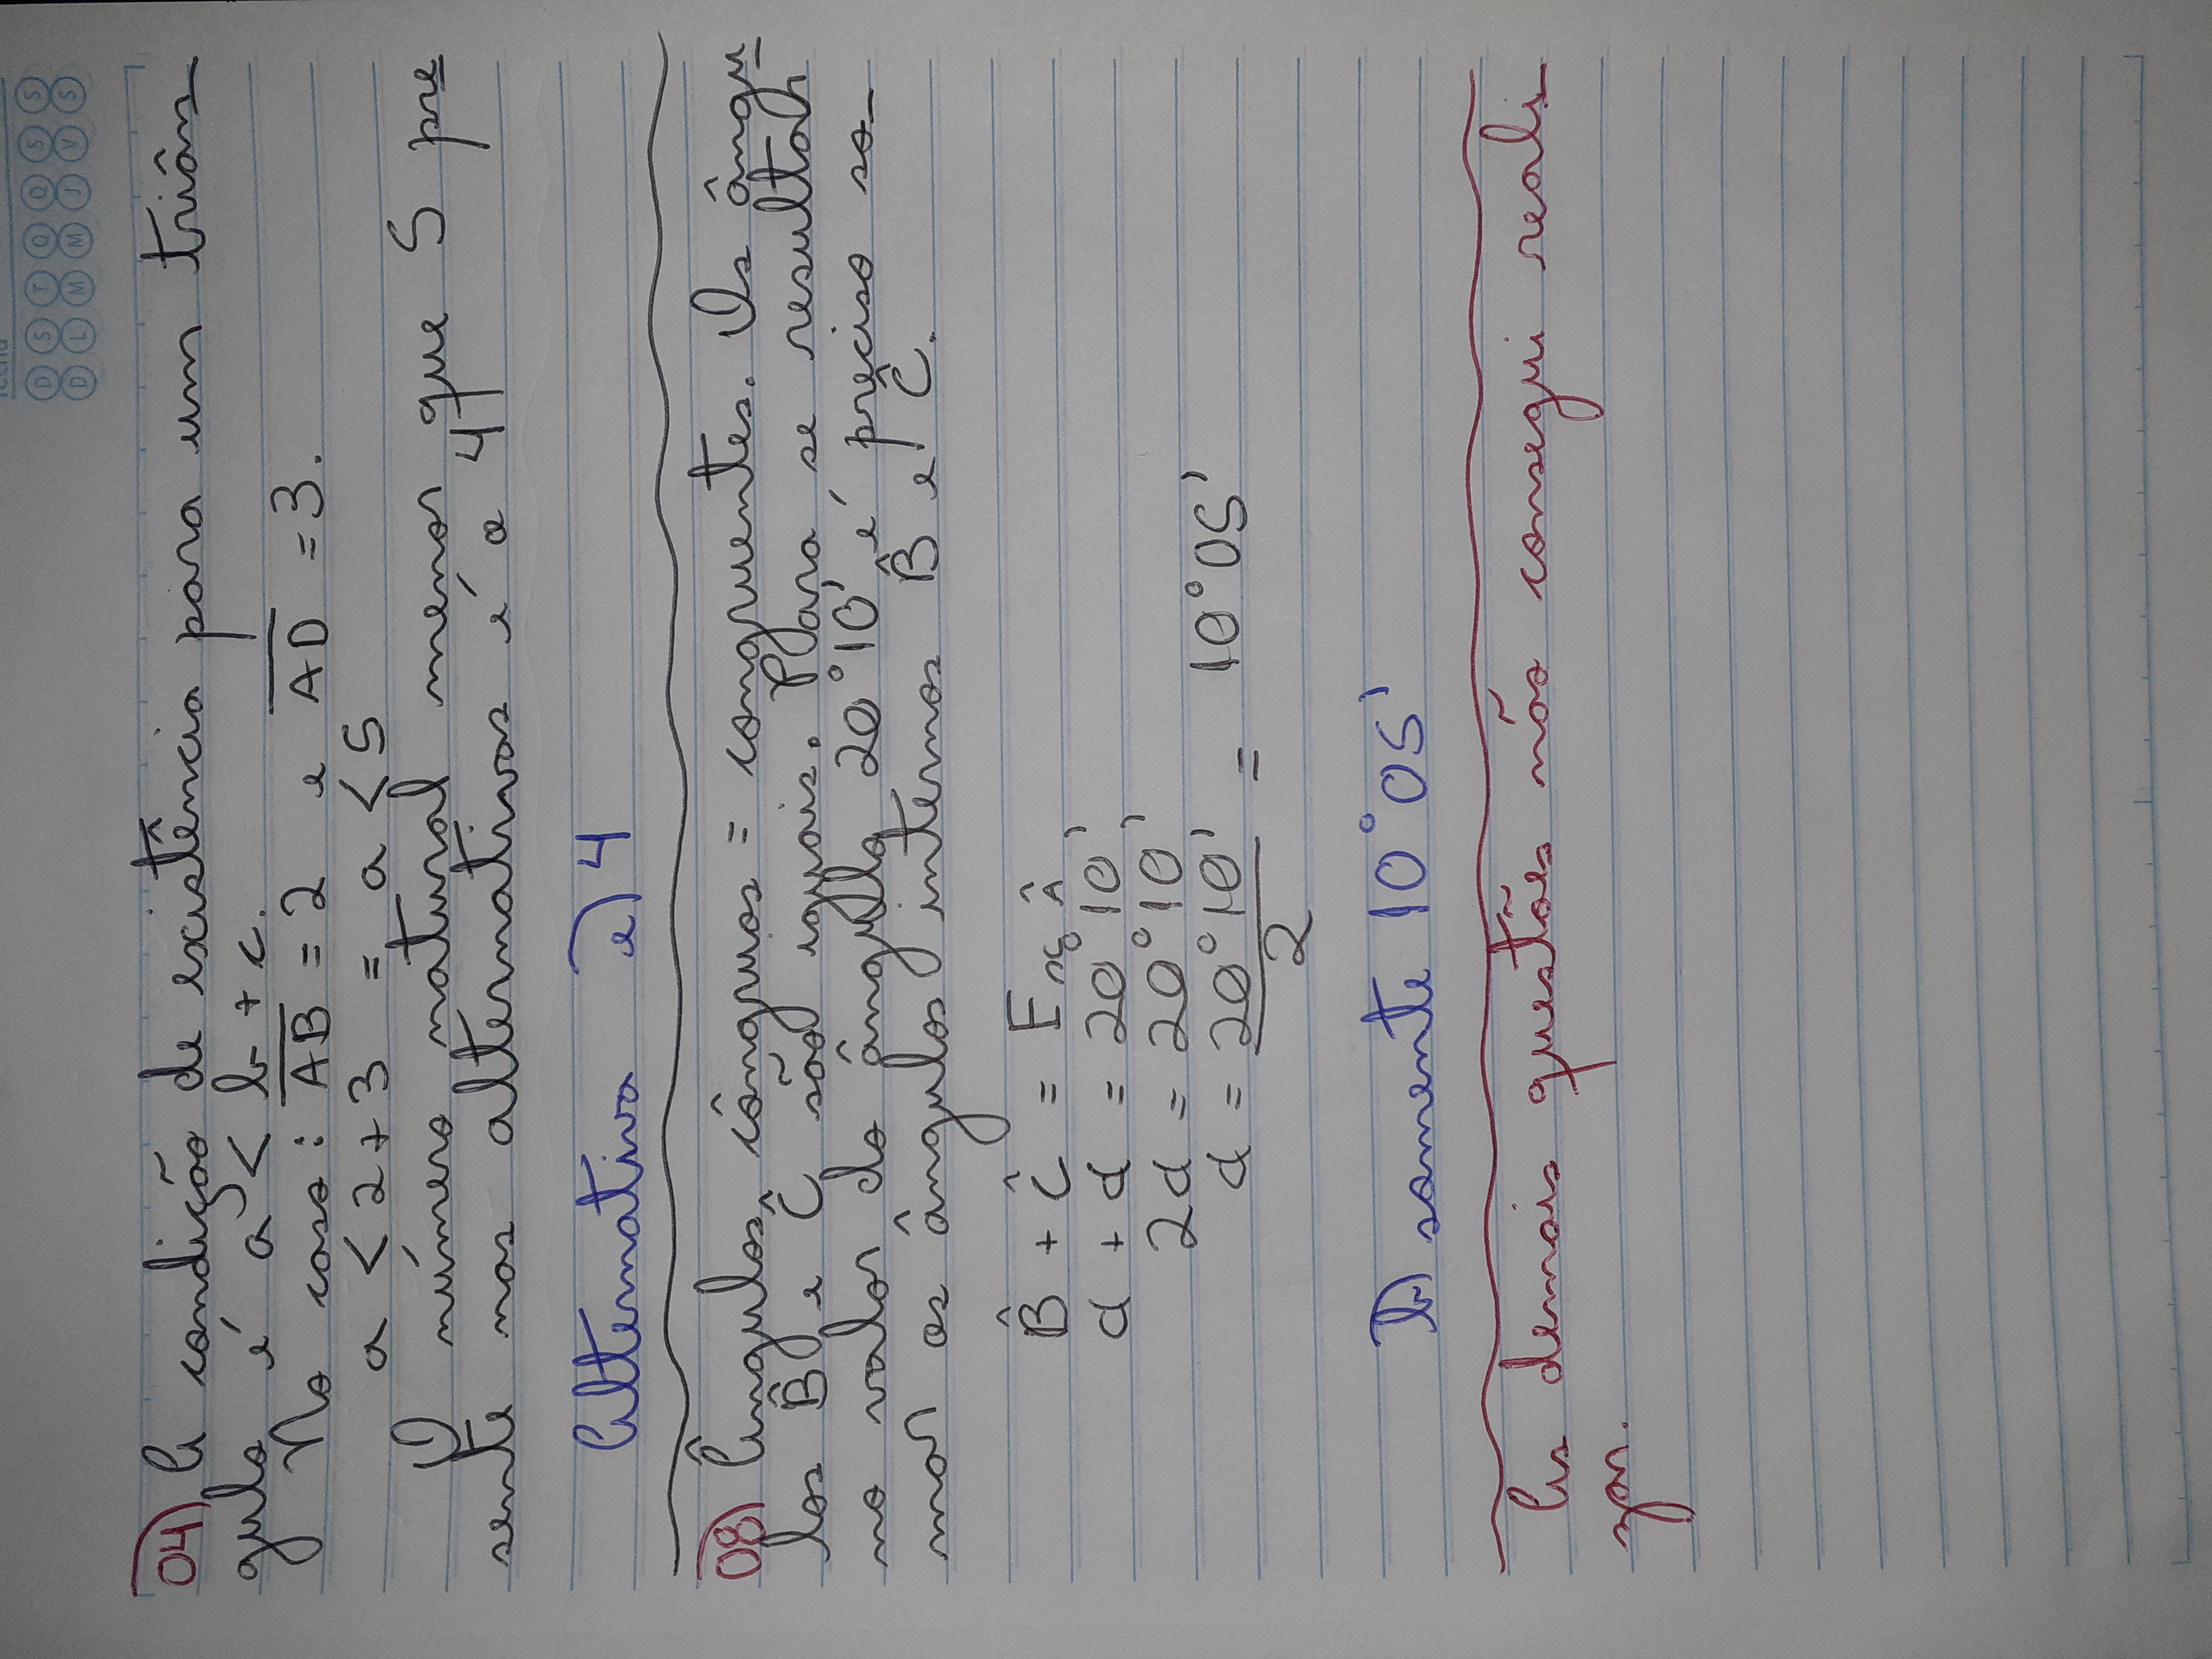 fecha
D S T Q Q S S
D L M M J V S
04) A condição de existência para um triân-
gulo é a < b + c.
No caso: AB = 2 e AD = 3.
a < 2 + 3 = a < 5
O número natural menor que 5 pre
sente nas alternativas é o 4
Alternativa e) 4
08) Ângulos côngruos = congruentes. Os ângu-
los B̂ e Ĉ são iguais. Para se resultar
no valor do ângulo 20°10' é preciso so-
mar os ângulos internos B̂ e Ĉ.
B̂ + Ĉ = Ext Â
α + α = 20°10'
2α = 20°10'
α = 20°10' / 2 = 10°05'
b) somente 10°05'
As demais questões não consegui reali
zar.